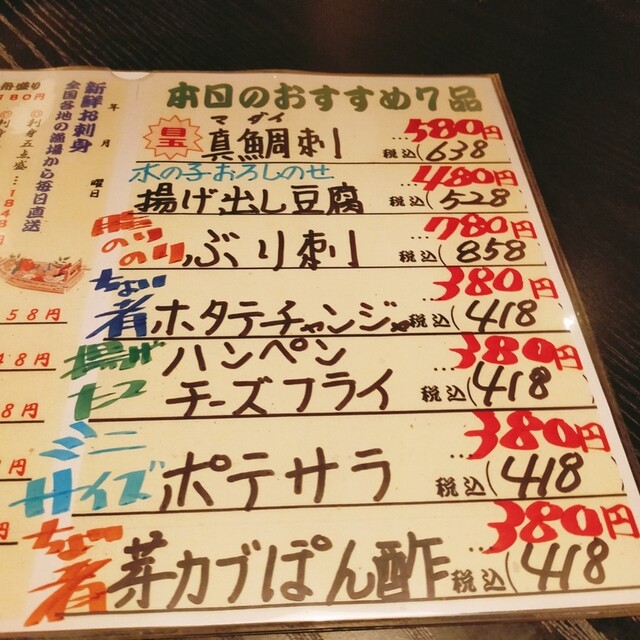 本日のおすすめ7品
目玉
マダイ
真鯛刺
…580円
税込(638
氷の子おろしのせ
揚げ出し豆腐
…480円
税込(528
脂のりのり
ぶり刺
…780円
税込(858
ちょい肴
ホタテチャンジャ
…380円
税込(418
揚げ
ハンペン
チーズフライ
…380円
税込(418
ミニサイズ
ポテサラ
…380円
税込(418
ちょい肴
芽カブぽん酢
…380円
税込(418
年 月 曜日
新鮮お刺身
全国各地の漁場から毎日直送
舟盛り
180円
◎刺身五点盛…1848円
58円
48円
8円
円